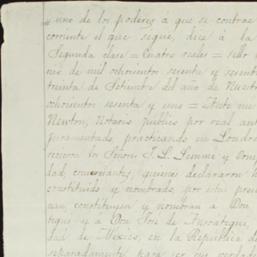 uno de los poderes a que se contrae
corriente el que segue, dice á la
Segunda clase = Cuatro reales = sello
nes de mil ochocientos sesenta y sesenta
treinta de Setiembre del año de Nuestro
ochocientos sesenta y uno = Ante mi
Newton, Notario publico por real
juramentado, practicando en Londres
recieron los Señores J. L. Lemme y
dad, comerciantes, quienes declararon
constituido y nombrado, por este
sen, constituyen y nombran a Don
tegui y á Don José de Ansoategui,
dad de México, en la República de
separadamente para ser sus verdade